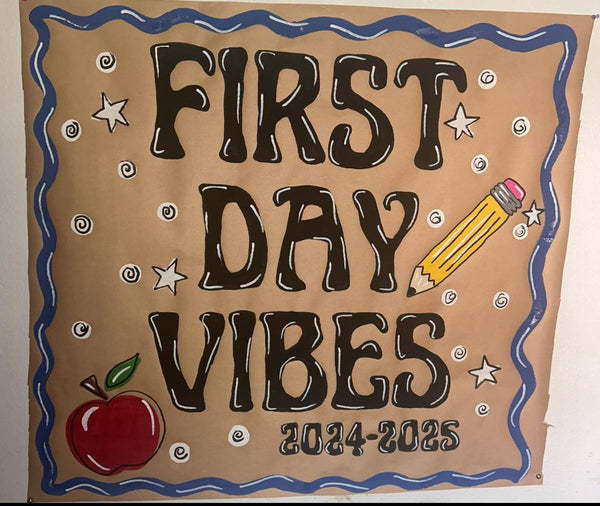 FIRST
DAY
VIBES
2024-2025